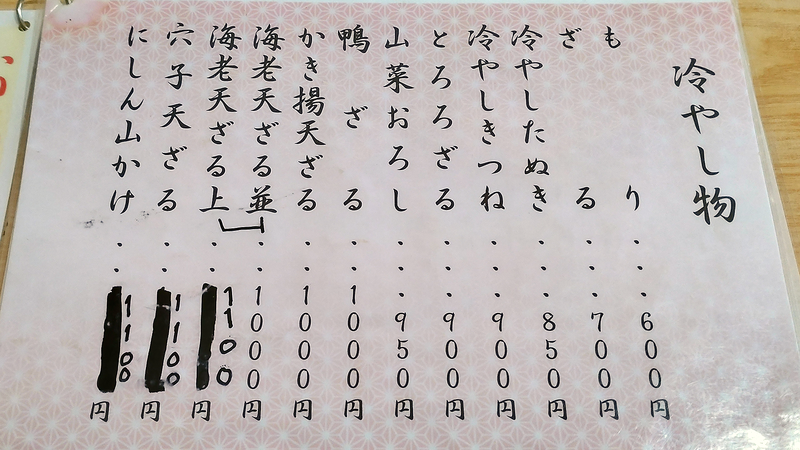 冷やし物
もり・・・600円
ざる・・・700円
冷やしたぬき・・・850円
冷やしきつね・・・900円
とろろざる・・・900円
山菜おろし・・・950円
鴨ざる・・・1000円
かき揚天ざる・・・1000円
海老天ざる並・・・1000円
海老天ざる上・・1100円
穴子天ざる・・1100円
にしん山かけ・・1100円